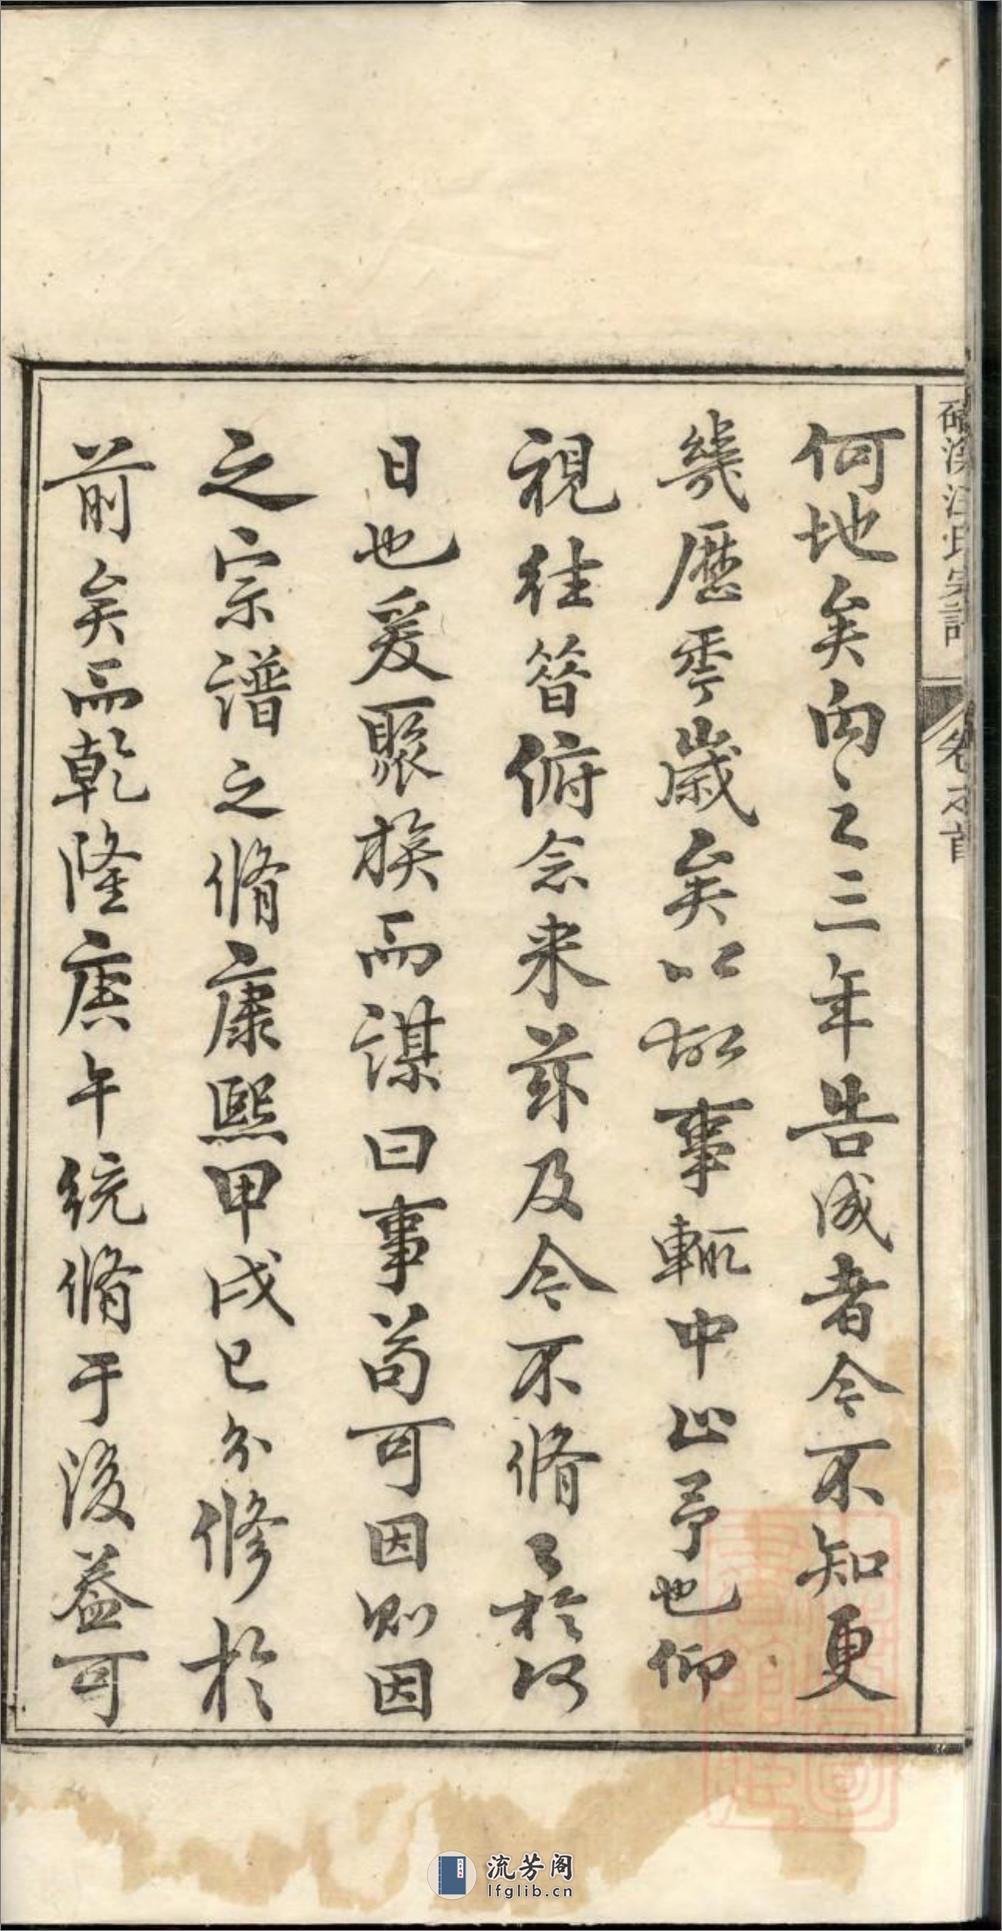 汪氏宗譜
卷之首
何地矣向之三年告成者今不知更
幾歷季歲矣以故事輒中止予也仰
視往昔俯念来茲及今不脩〻於何
日也爰聚族而謀曰事苟可因則因
之宗譜之脩康熙甲戌已分修於
前矣而乾隆庚午統脩于後益可
流芳阁
lfglib.cn